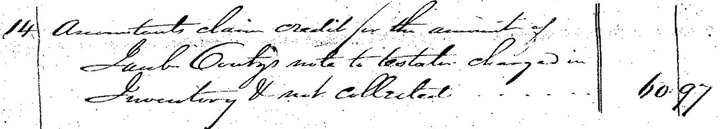 14 Accountants claim credit for the amount of
Jacob note to testator charged in
Inventory & not collected . . . . . . . 60.97